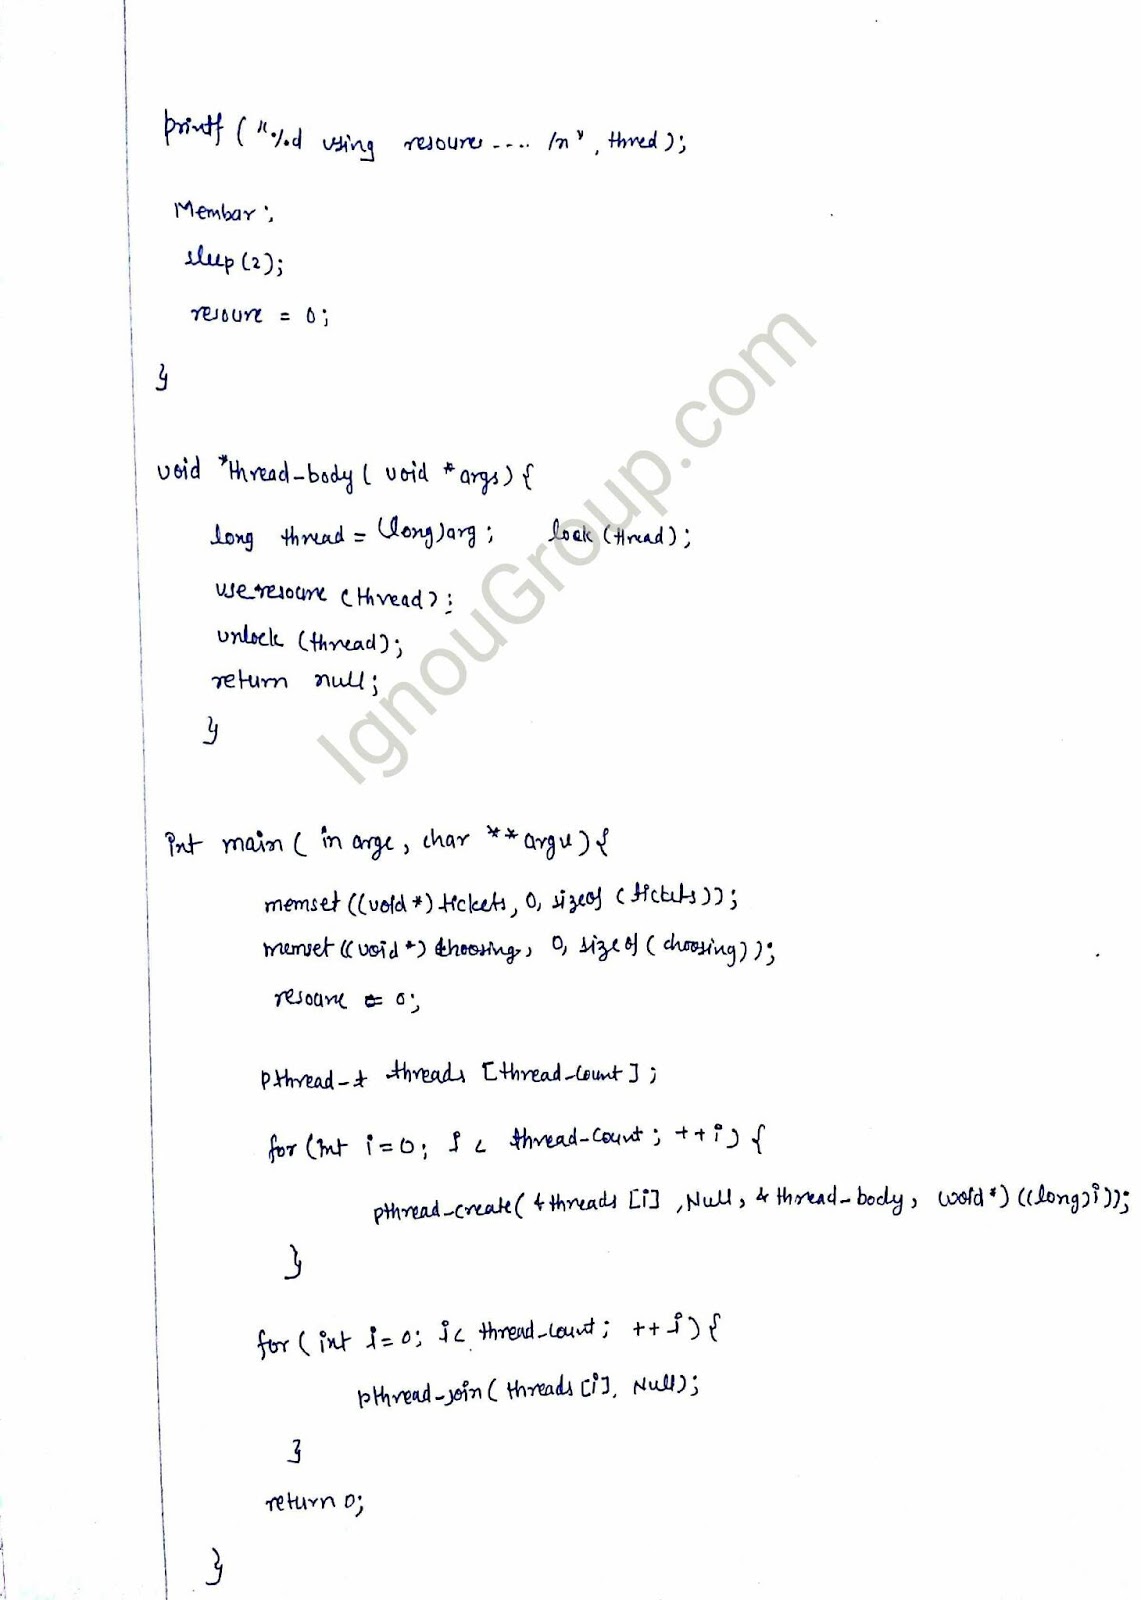 printf ("%d using resoure .... /n", thred);
Membar;
sleep(2);
resoure = 0;
}
void *thread-body ( void *args) {
long thread = (long)arg; lock (thread);
use-resoure (thread);
unlock (thread);
return null;
}
int main ( in arge, char ** argu) {
memset ((void *) tickets, 0, sizeof (tickets));
memset ((void *) choosing, 0, size of (choosing));
resoure = 0;
pthread-t threads [thread-count];
for (int i=0; i < thread-count; ++i) {
pthread-create( &threads [i], Null, & thread-body, (void *) ((long)i));
}
for ( int i=0; i< thread-count; ++i) {
pthread-join ( threads [i], Null);
}
return 0;
}
IgnouGroup.com